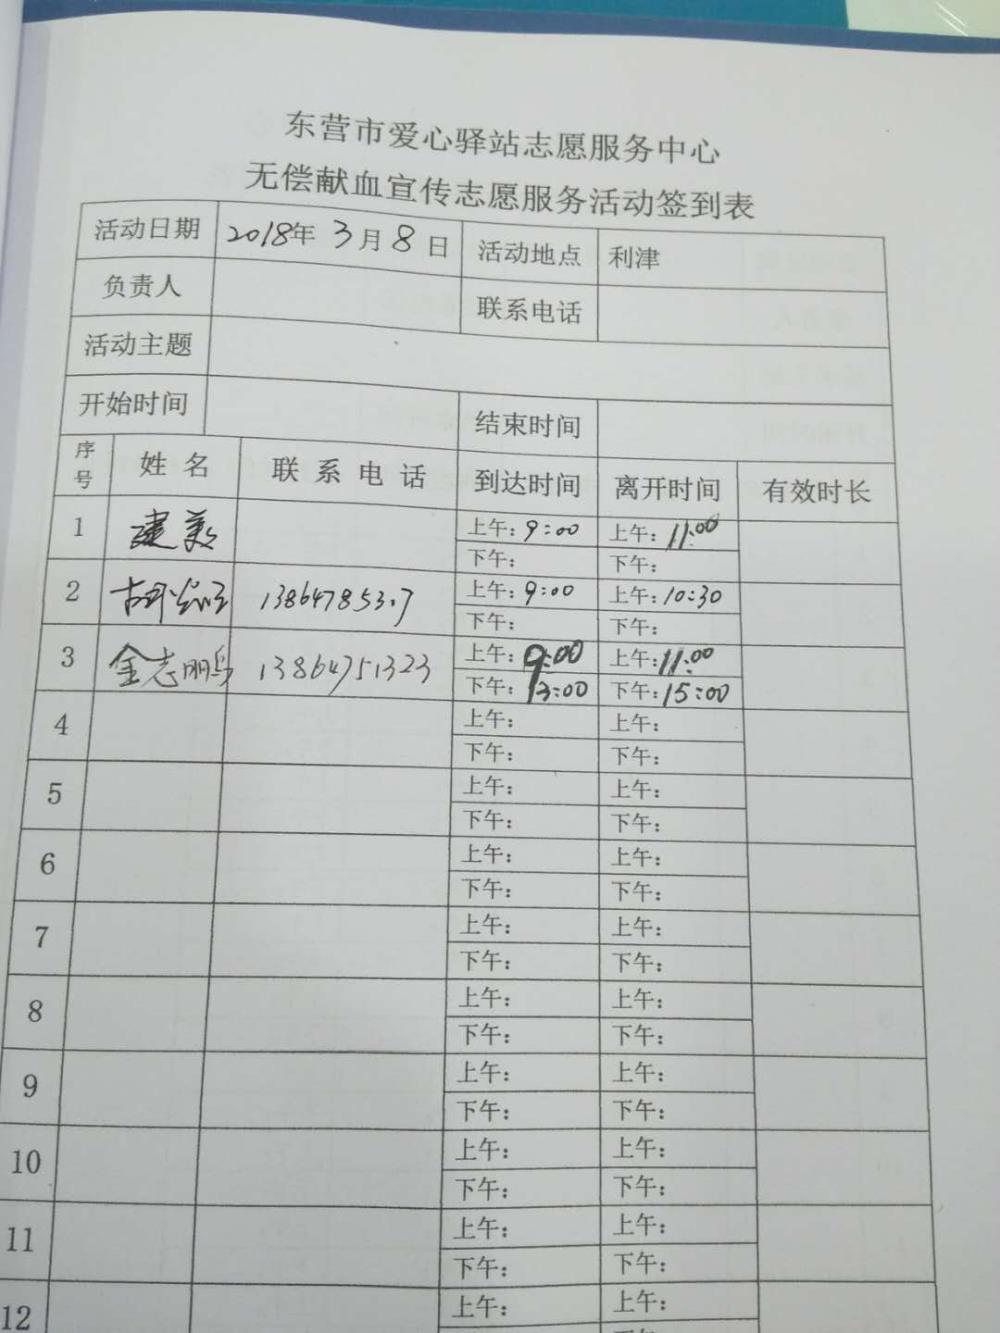 东营市爱心驿站志愿服务中心
无偿献血宣传志愿服务活动签到表
活动日期 2018年 3月 8日 活动地点 利津
负责人 联系电话
活动主题
开始时间 结束时间
序号 姓名 联系电话 到达时间 离开时间 有效时长
1 建美 上午:9:00 上午:11:00
下午: 下午:
2 上午:9:00 上午:10:30
下午: 下午:
3 金志鹏 13864751323 上午:9:00 上午:11:00
下午:13:00 下午:15:00
4 上午: 上午:
下午: 下午:
5 上午: 上午:
下午: 下午:
6 上午: 上午:
下午: 下午:
7 上午: 上午:
下午: 下午:
8 上午: 上午:
下午: 下午:
9 上午: 上午:
下午: 下午:
10 上午: 上午:
下午: 下午:
11 上午: 上午:
下午: 下午:
12 上午: 上午: